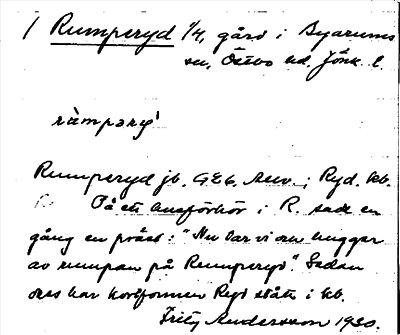 / Rumperyd 1/4, gård i Byarums
sn, Östbo hd. Jönk. l.
rùmpəry̆
Rumperyd jb. GEG. Muv.; Ryd. kb.
På ett husförhör i R. sade en
gång en präst: "Nu har vi en hugger
av rumpan på Rumperyd". Sedan
dess har kortformen Ryd stått i kb.
Fritz Andersson 1930.